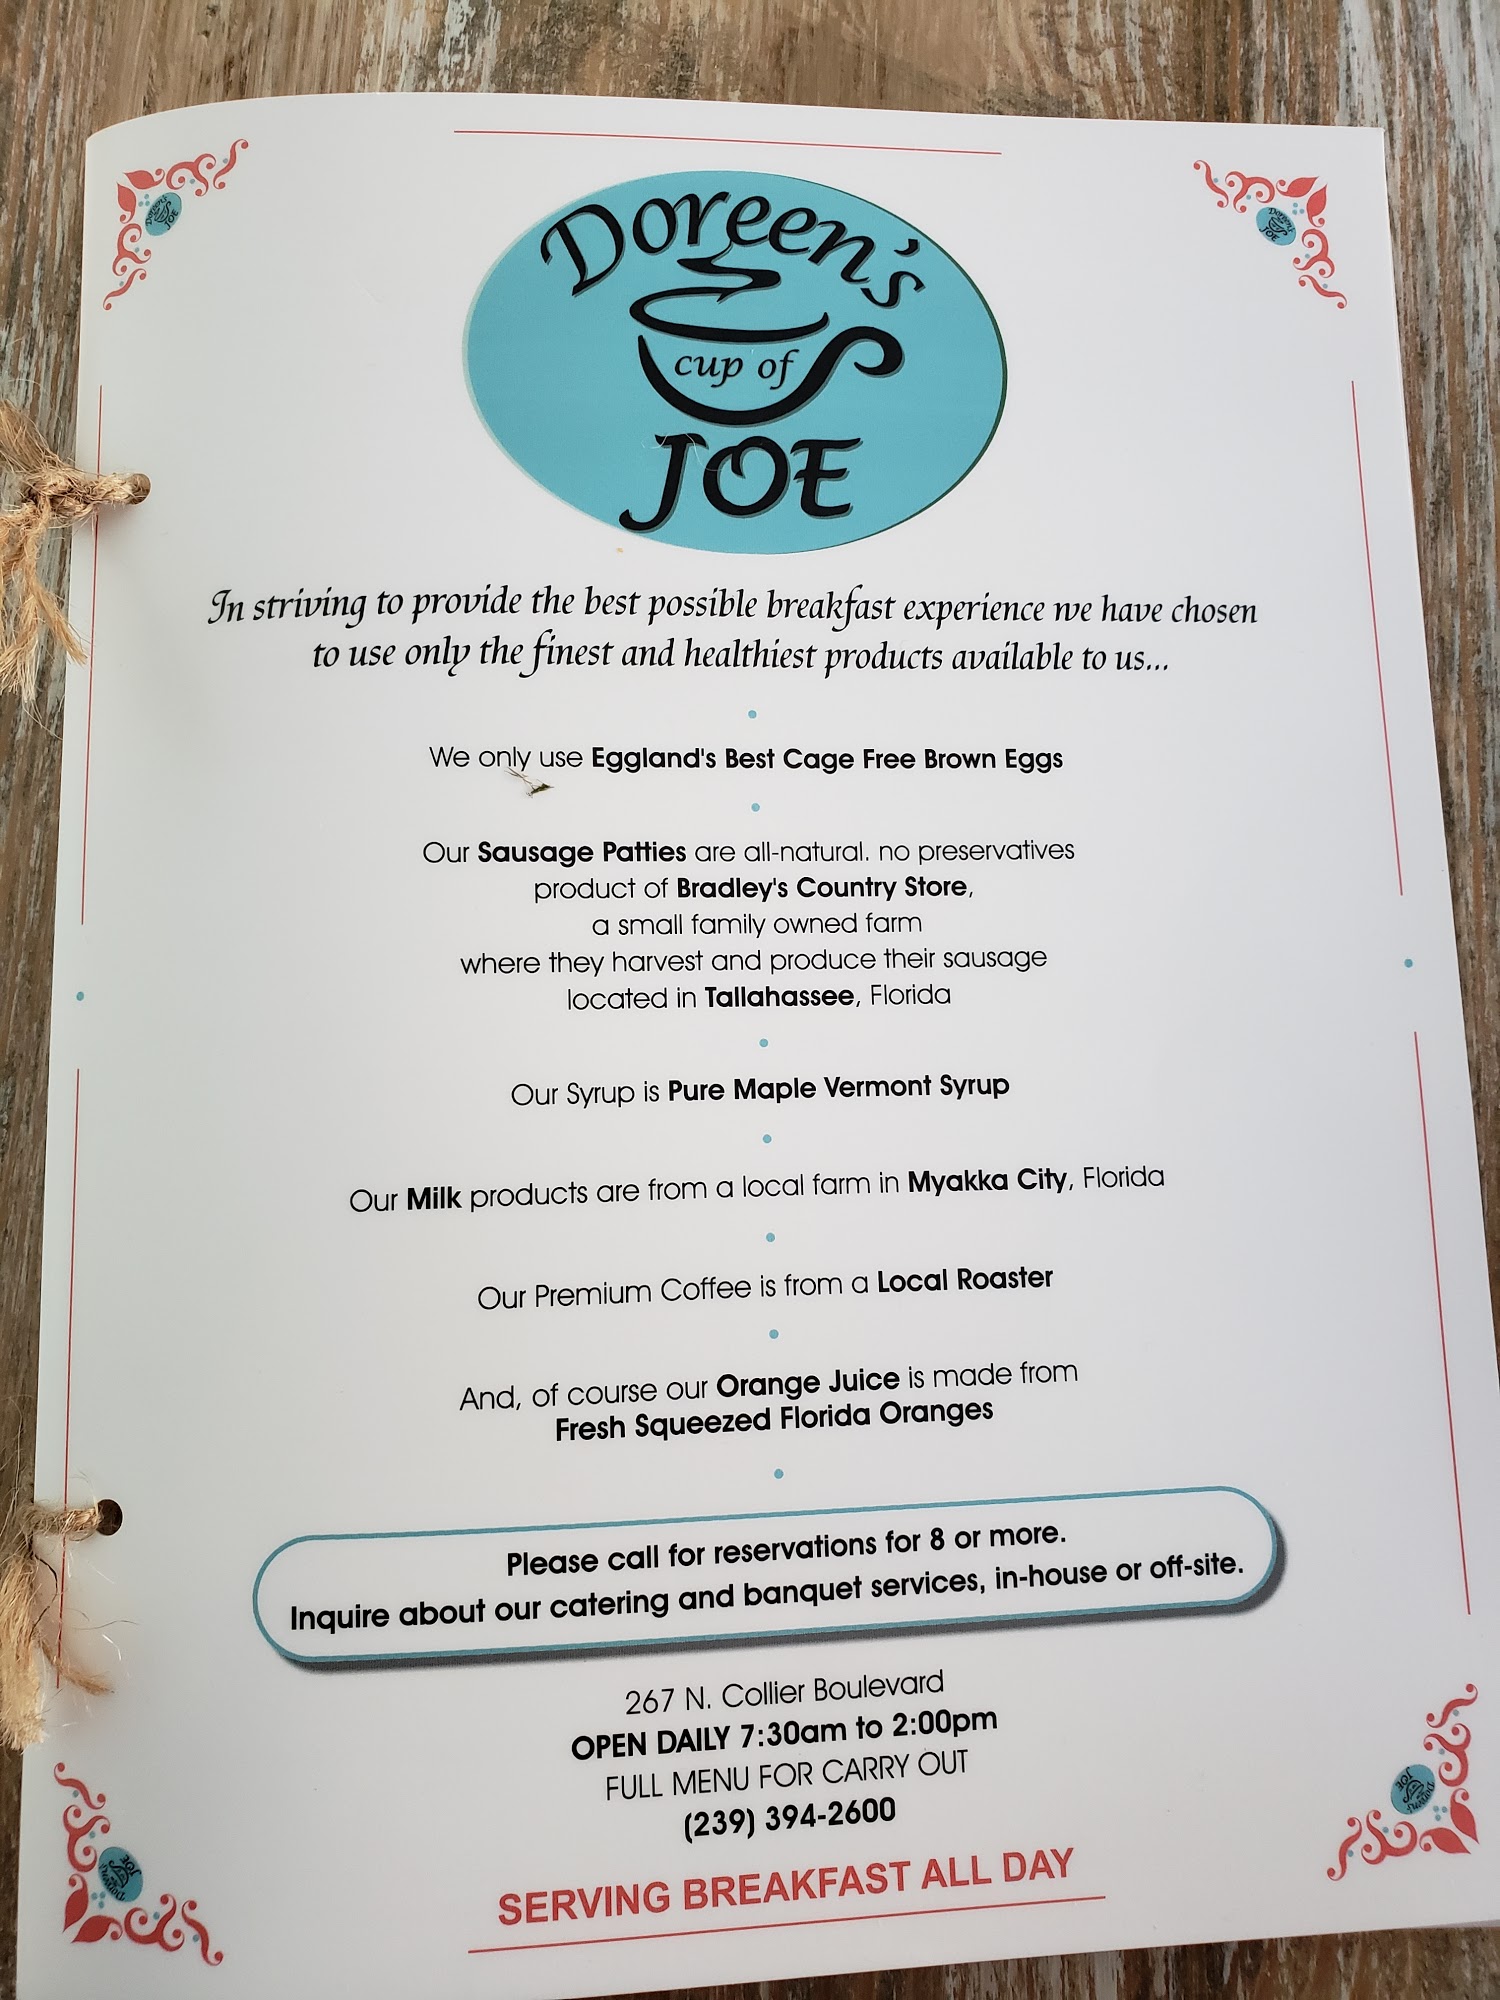 Doreen's
cup of
JOE
In striving to provide the best possible breakfast experience we have chosen
to use only the finest and healthiest products available to us...
We only use Eggland's Best Cage Free Brown Eggs
Our Sausage Patties are all-natural. no preservatives
product of Bradley's Country Store,
a small family owned farm
where they harvest and produce their sausage
located in Tallahassee, Florida
Our Syrup is Pure Maple Vermont Syrup
Our Milk products are from a local farm in Myakka City, Florida
Our Premium Coffee is from a Local Roaster
And, of course our Orange Juice is made from
Fresh Squeezed Florida Oranges
Please call for reservations for 8 or more.
Inquire about our catering and banquet services, in-house or off-site.
267 N. Collier Boulevard
OPEN DAILY 7:30am to 2:00pm
FULL MENU FOR CARRY OUT
(239) 394-2600
SERVING BREAKFAST ALL DAY